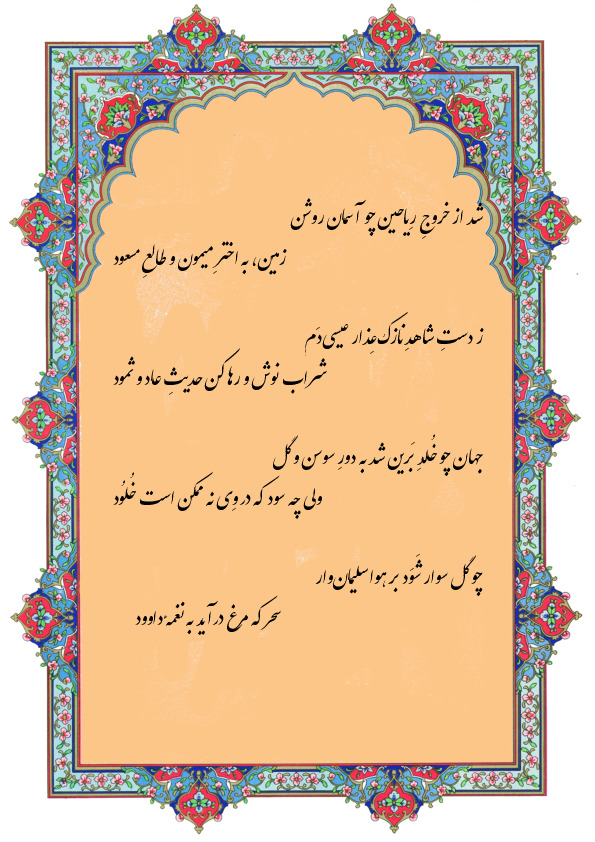 شد از خروجِ ریاحین چو آسمان روشن
زمین، به اخترِ میمون و طالعِ مسعود
ز دستِ شاهدِ نازک‌عِذار عیسی‌دَم
شراب نوش و رها کن حدیثِ عاد و ثمود
جهان چو خُلدِ بَرین شد به دورِ سوسن و گل
ولی چه سود که در وِی نه ممکن است خُلُود
چو گل سوار شَوَد بر هوا سلیمان‌وار
سحر که مرغ درآید به نغمهٔ داوود